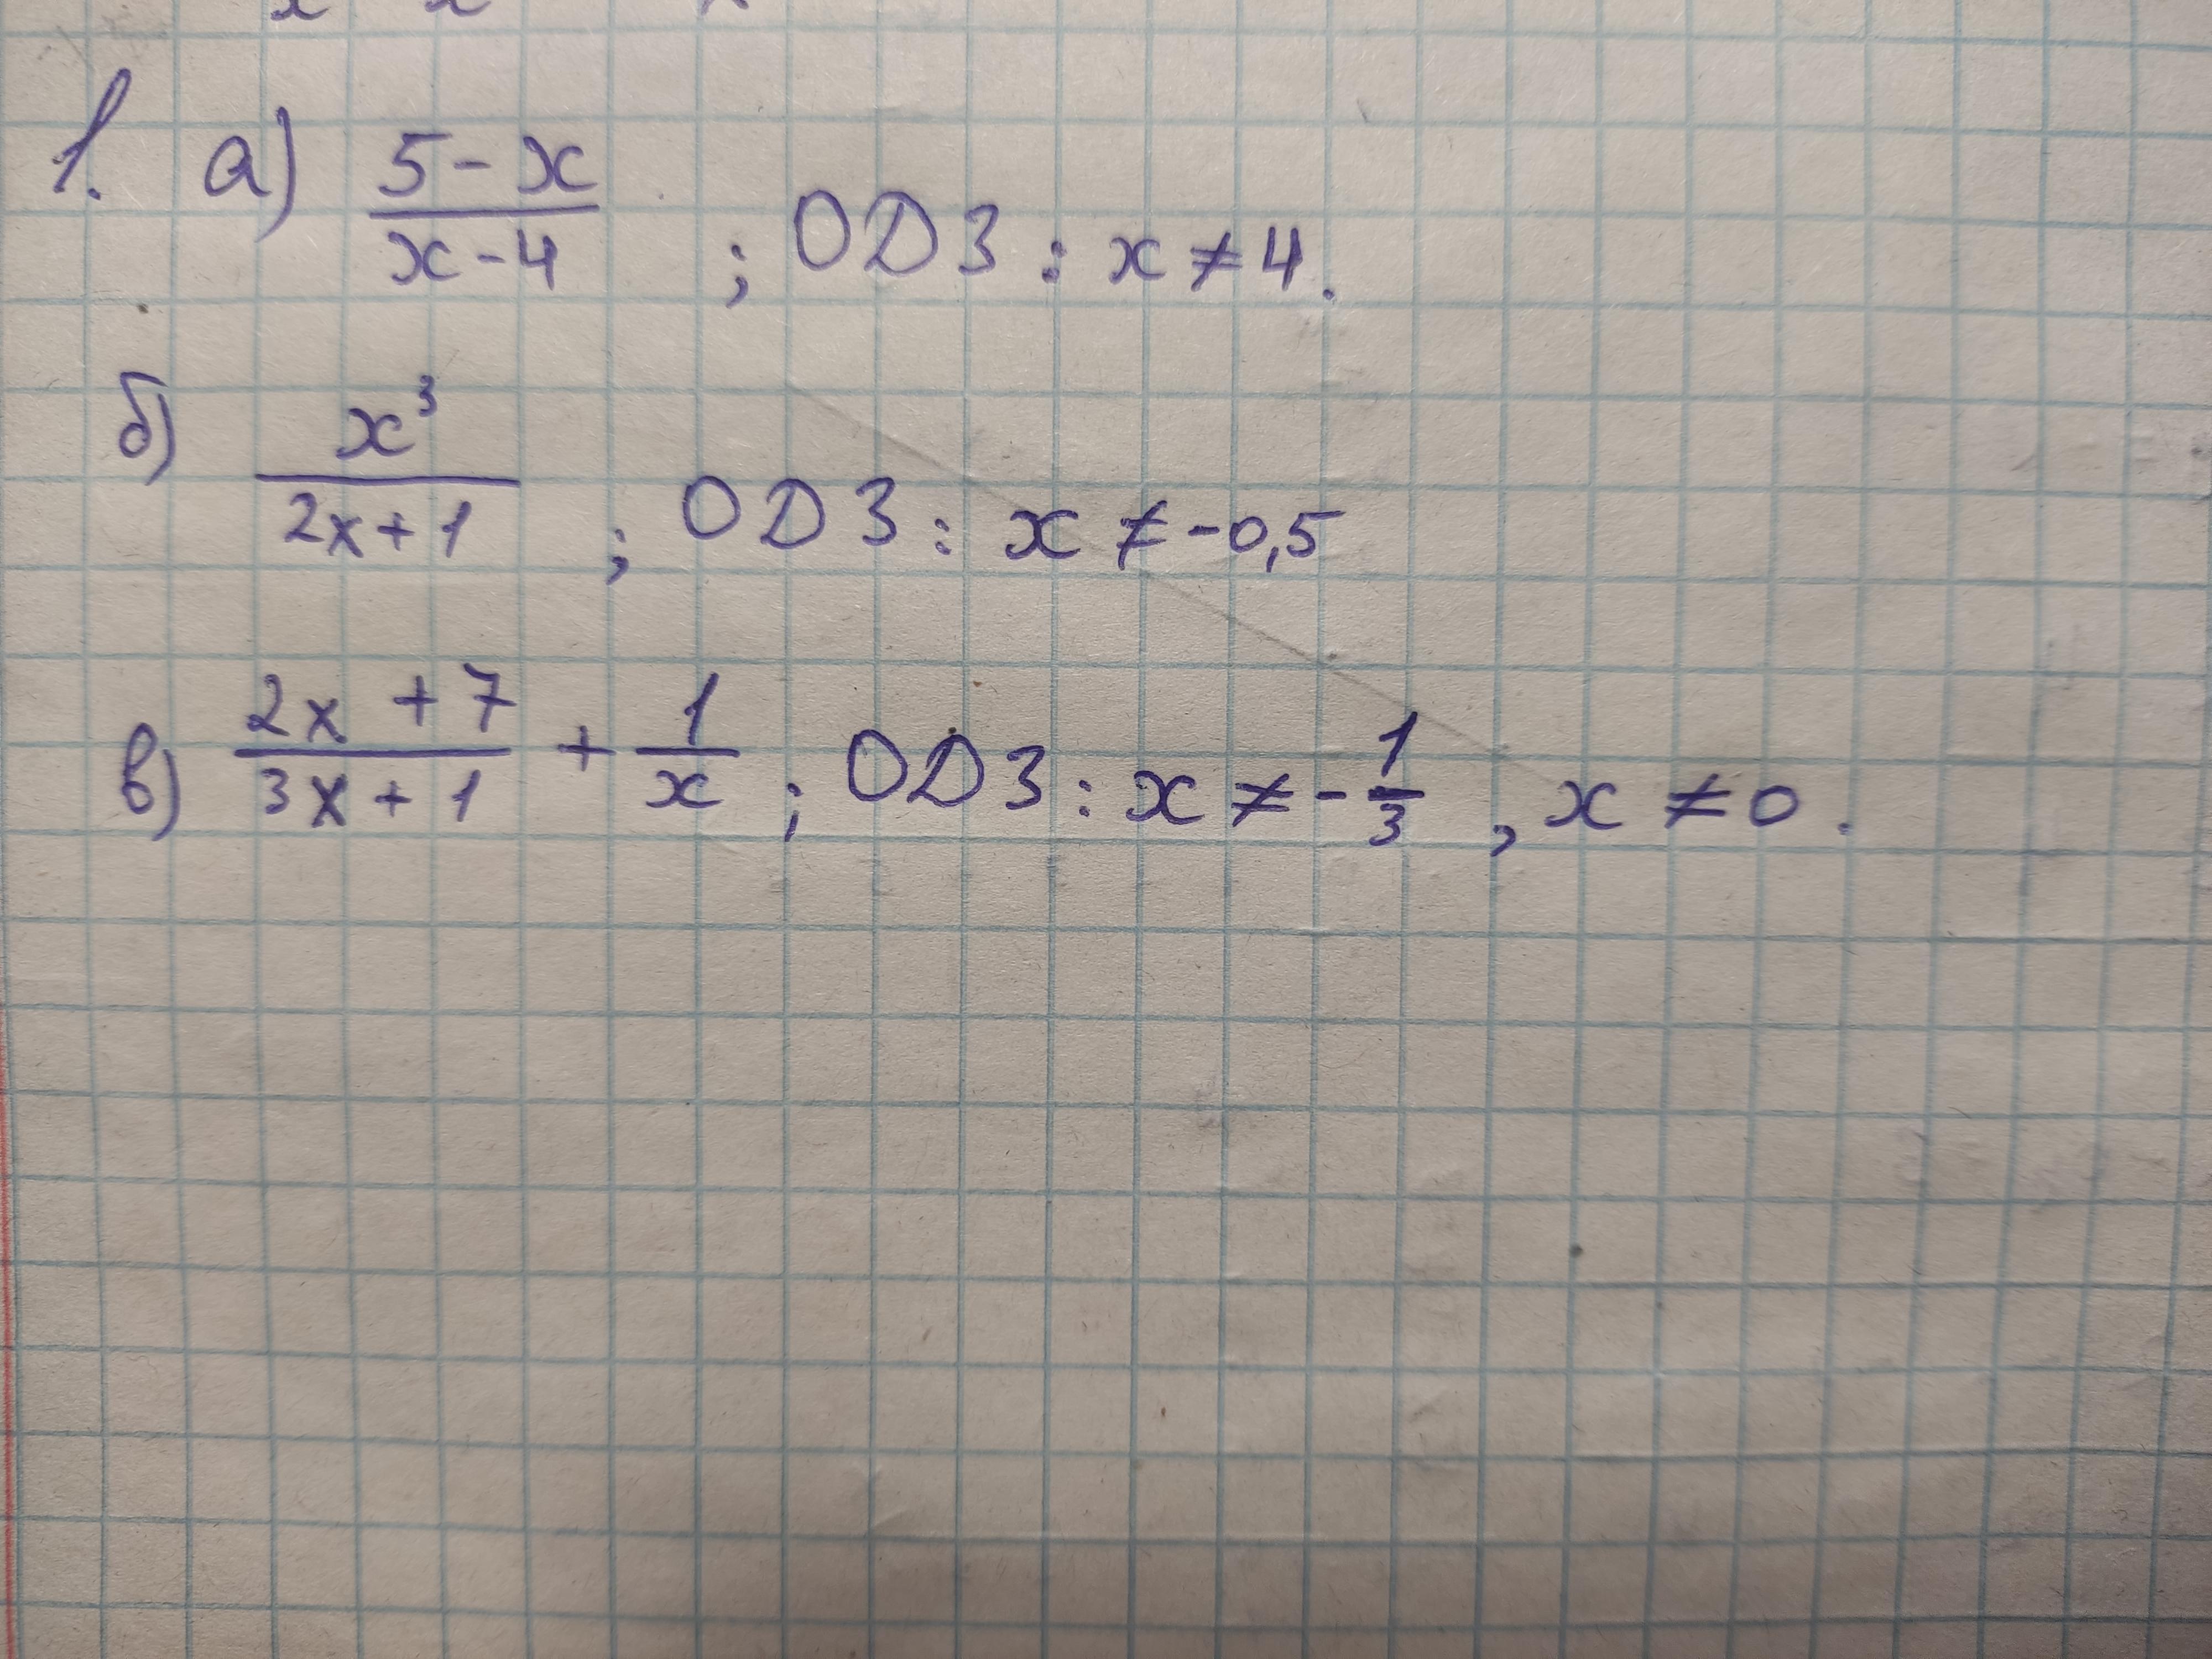 1. а) (5-x)/(x-4) ; ОDЗ : x ≠ 4.
б) x³/(2x+1) ; ОDЗ : x ≠ -0,5
в) (2x+7)/(3x+1) + 1/x ; ОDЗ : x ≠ -1/3 , x ≠ 0.